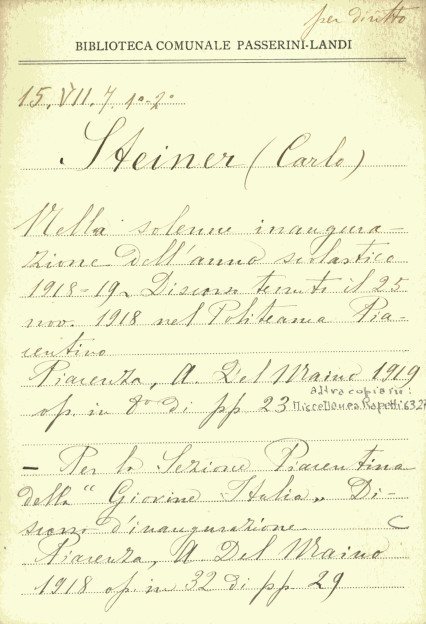 per diritto
BIBLIOTECA COMUNALE PASSERINI-LANDI
15. VII. 7. 1º-2º
Steiner (Carlo)
Nella solenne inaugura-
zione dell'anno scolastico
1918-19. Discorsi tenuti il 25
nov. 1918 nel Politeama Pia-
centino
Piacenza, A. Del Maino 1919
altra copia in:
op. in 8º di pp 23 Miscellanea Rapetti 63.27
- Per la Sezione Piacentina
della "Giovine Italia„ Di-
scorso d'inaugurazione
Piacenza, A. Del Maino
1918 op. in 32 di pp 29